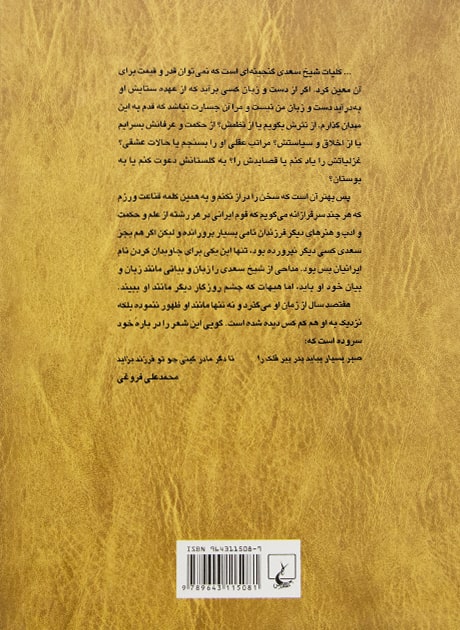 ... کلیات شیخ سعدی گنجینه‌ای است که نمی‌توان قدر و قیمت برای
آن معین کرد. اگر از دست و زبان کسی برآید که از عهده ستایش او
به‌درآید دست و زبان من نیست و مرا آن جسارت نباشد که قدم به این
میدان گذارم. از نثرش بگویم یا از نظمش؟ از حکمت و عرفانش بسرایم
یا از اخلاق و سیاستش؟ مراتب عقلی او را بسنجم یا حالات عشقی؟
غزلیاتش را یاد کنم یا قصایدش را؟ به گلستانش دعوت کنم یا به
بوستان؟
پس بهتر آن است که سخن را دراز نکنم و به همین کلمه قناعت ورزم
که هر چند سرفرازانه می‌گویم که قوم ایرانی در هر رشته از علم و حکمت
و ادب و هنرهای دیگر فرزندان نامی بسیار پرورانده و لیکن اگر هم بجز
سعدی کسی دیگر نپرورده بود، تنها این یکی برای جاویدان کردن نام
ایرانیان بس بود. مداحی از شیخ سعدی را زبان و بیانی مانند زبان و
بیان خود او باید، اما هیهات که چشم روزگار دیگر مانند او ببیند.
هفتصد سال از زمان او می‌گذرد و نه تنها مانند او ظهور ننموده بلکه
نزدیک به او هم کم کس دیده شده است. گویی این شعر را در باره خود
سروده است که:
صبر بسیار بباید پدر پیر فلک را تا دگر مادر گیتی چو تو فرزند بزاید
محمدعلی فروغی
ISBN 964311508-9
9 789643 115081
ققنوس